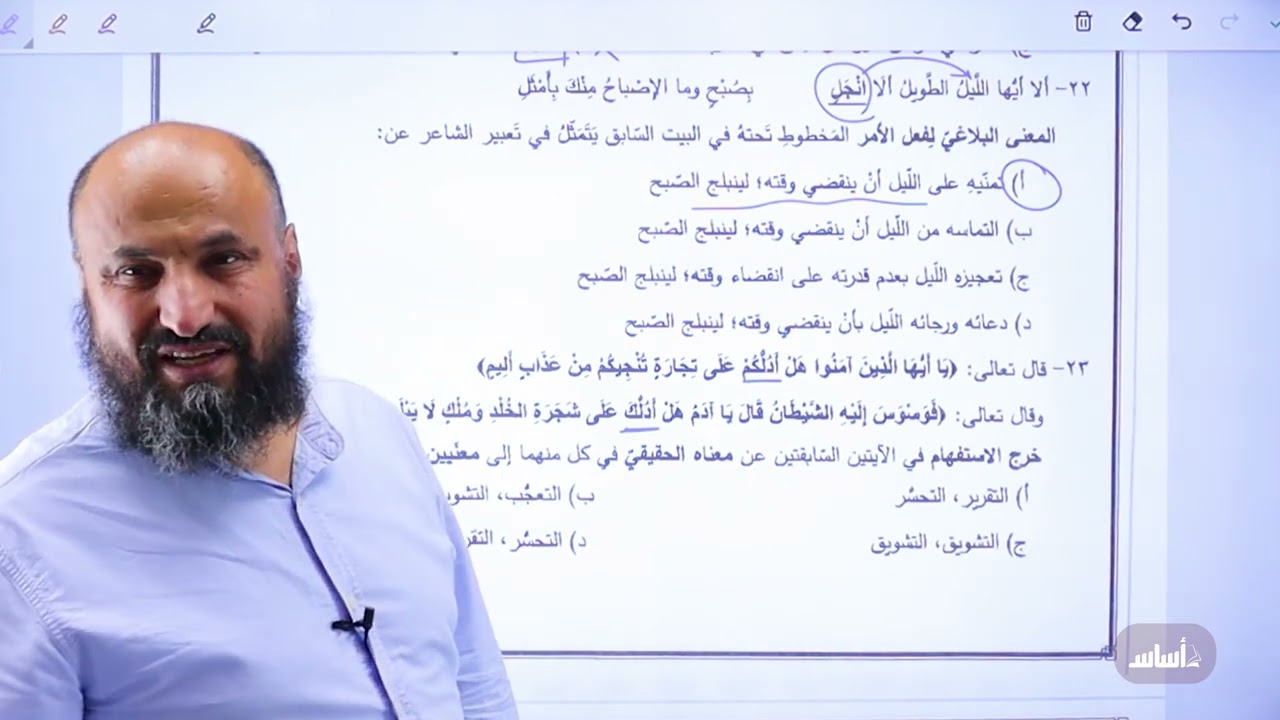 ٢٢- ألا أيُّها اللَّيْلُ الطَّوِيلُ ألَا انْجَلِ بِصُبْحٍ وما الإصْباحُ مِنْكَ بِأَمْثَلِ
المعنى البلاغيّ لِفعل الأمر المَخطوطِ تَحتهُ في البيت السّابق يَتَمَثّلُ في تَعبير الشاعر عن:
أ) تمنّيهِ على اللّيل أنْ ينقضي وقته؛ لينبلج الصّبح
ب) التماسه من اللّيل أنْ ينقضي وقته؛ لينبلج الصّبح
ج) تعجيزه اللّيل بعدم قدرته على انقضاء وقته؛ لينبلج الصّبح
د) دعائه ورجائه اللّيل بأنْ ينقضي وقته؛ لينبلج الصّبح
٢٣- قال تعالى: (يَا أَيُّهَا الَّذِينَ آمَنُوا هَلْ أَدُلُّكُمْ عَلَى تِجَارَةٍ تُنْجِيكُمْ مِنْ عَذَابٍ أَلِيمٍ)
وقال تعالى: (فَوَسْوَسَ إِلَيْهِ الشَّيْطَانُ قَالَ يَا آدَمُ هَلْ أَدُلُّكَ عَلَى شَجَرَةِ الْخُلْدِ وَمُلْكٍ لَا
خرج الاستفهام في الآيتين السّابقتين عن معناه الحقيقيّ في كل منهما إلى معنَيين
أ) التقرير، التحسُّر ب) التعجُّب،
ج) التشويق، التشويق د) التحسُّر،
أساس